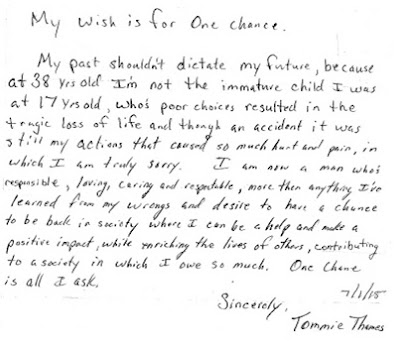 My wish is for One Chance.
My past shouldn't dictate my future, because
at 38 yrs old I'm not the immature child I was
at 17 yrs old, who's poor choices resulted in the
tragic loss of life and though an accident it was
still my actions that caused so much hurt and pain, in
which I am truly sorry. I am now a man who's
responsible, loving, caring and respectable, more then anything I've
learned from my wrongs and desire to have a chance
to be back in society where I can be a help and make a
positive impact, while enriching the lives of others, contributing
to a society in which I owe so much. One Chane
is all I ask.
7/1/15
Sincerely,
Tommie Thames